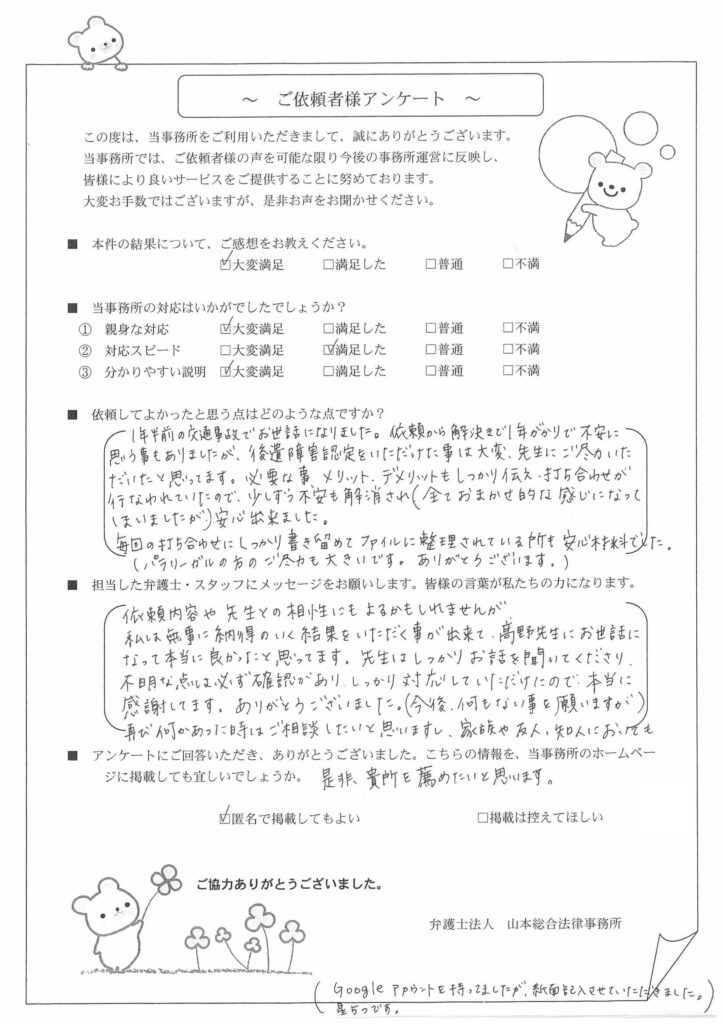 ～ ご依頼者様アンケート ～
この度は、当事務所をご利用いただきまして、誠にありがとうございます。
当事務所では、ご依頼者様の声を可能な限り今後の事務所運営に反映し、
皆様により良いサービスをご提供することに努めております。
大変お手数ではございますが、是非お声をお聞かせください。
■ 本件の結果について、ご感想をお教えください。
☑大変満足 □満足した □普通 □不満
■ 当事務所の対応はいかがでしたでしょうか？
① 親身な対応 ☑大変満足 □満足した □普通 □不満
② 対応スピード □大変満足 ☑満足した □普通 □不満
③ 分かりやすい説明 ☑大変満足 □満足した □普通 □不満
■ 依頼してよかったと思う点はどのような点ですか？
1年半前の交通事故でお世話になりました。依頼から解決まで1年がかりで不安に
思う事もありましたが、後遺障害認定をいただけた事は大変、先生にご尽力いた
だいたと思ってます。必要な事、メリット、デメリットもしっかり伝え、打ち合わせが
行なわれていたので、少しずつ不安も解消され(全ておまかせ的な感じになって
しまいましたが)安心出来ました。
毎回の打ち合わせにしっかり書き留めてファイルに整理されている所も安心材料でした。
(パラリーガルの方のご尽力も大きいです。ありがとうございます。)
■ 担当した弁護士・スタッフにメッセージをお願いします。皆様の言葉が私たちの力になります。
依頼内容や先生との相性にもよるかもしれませんが
私は無事に納得のいく結果をいただく事が出来て、髙野先生にお世話に
なって本当に良かったと思ってます。先生はしっかりお話を聞いてくださり、
不明な点は必ず確認があり、しっかり対応していただけたので、本当に
感謝してます。ありがとうございました。(今後、何もない事を願いますが)
再び何かあった時はご相談したいと思いますし、家族や友人、知人においても
■ アンケートにご回答いただき、ありがとうございました。こちらの情報を、当事務所のホームペー
ジに掲載しても宜しいでしょうか。 是非、貴所を薦めたいと思います。
☑匿名で掲載してもよい □掲載は控えてほしい
ご協力ありがとうございました。
弁護士法人 山本総合法律事務所
(Googleアカウントを持ってましたが、紙面記入させていただきました。)
星5つです。